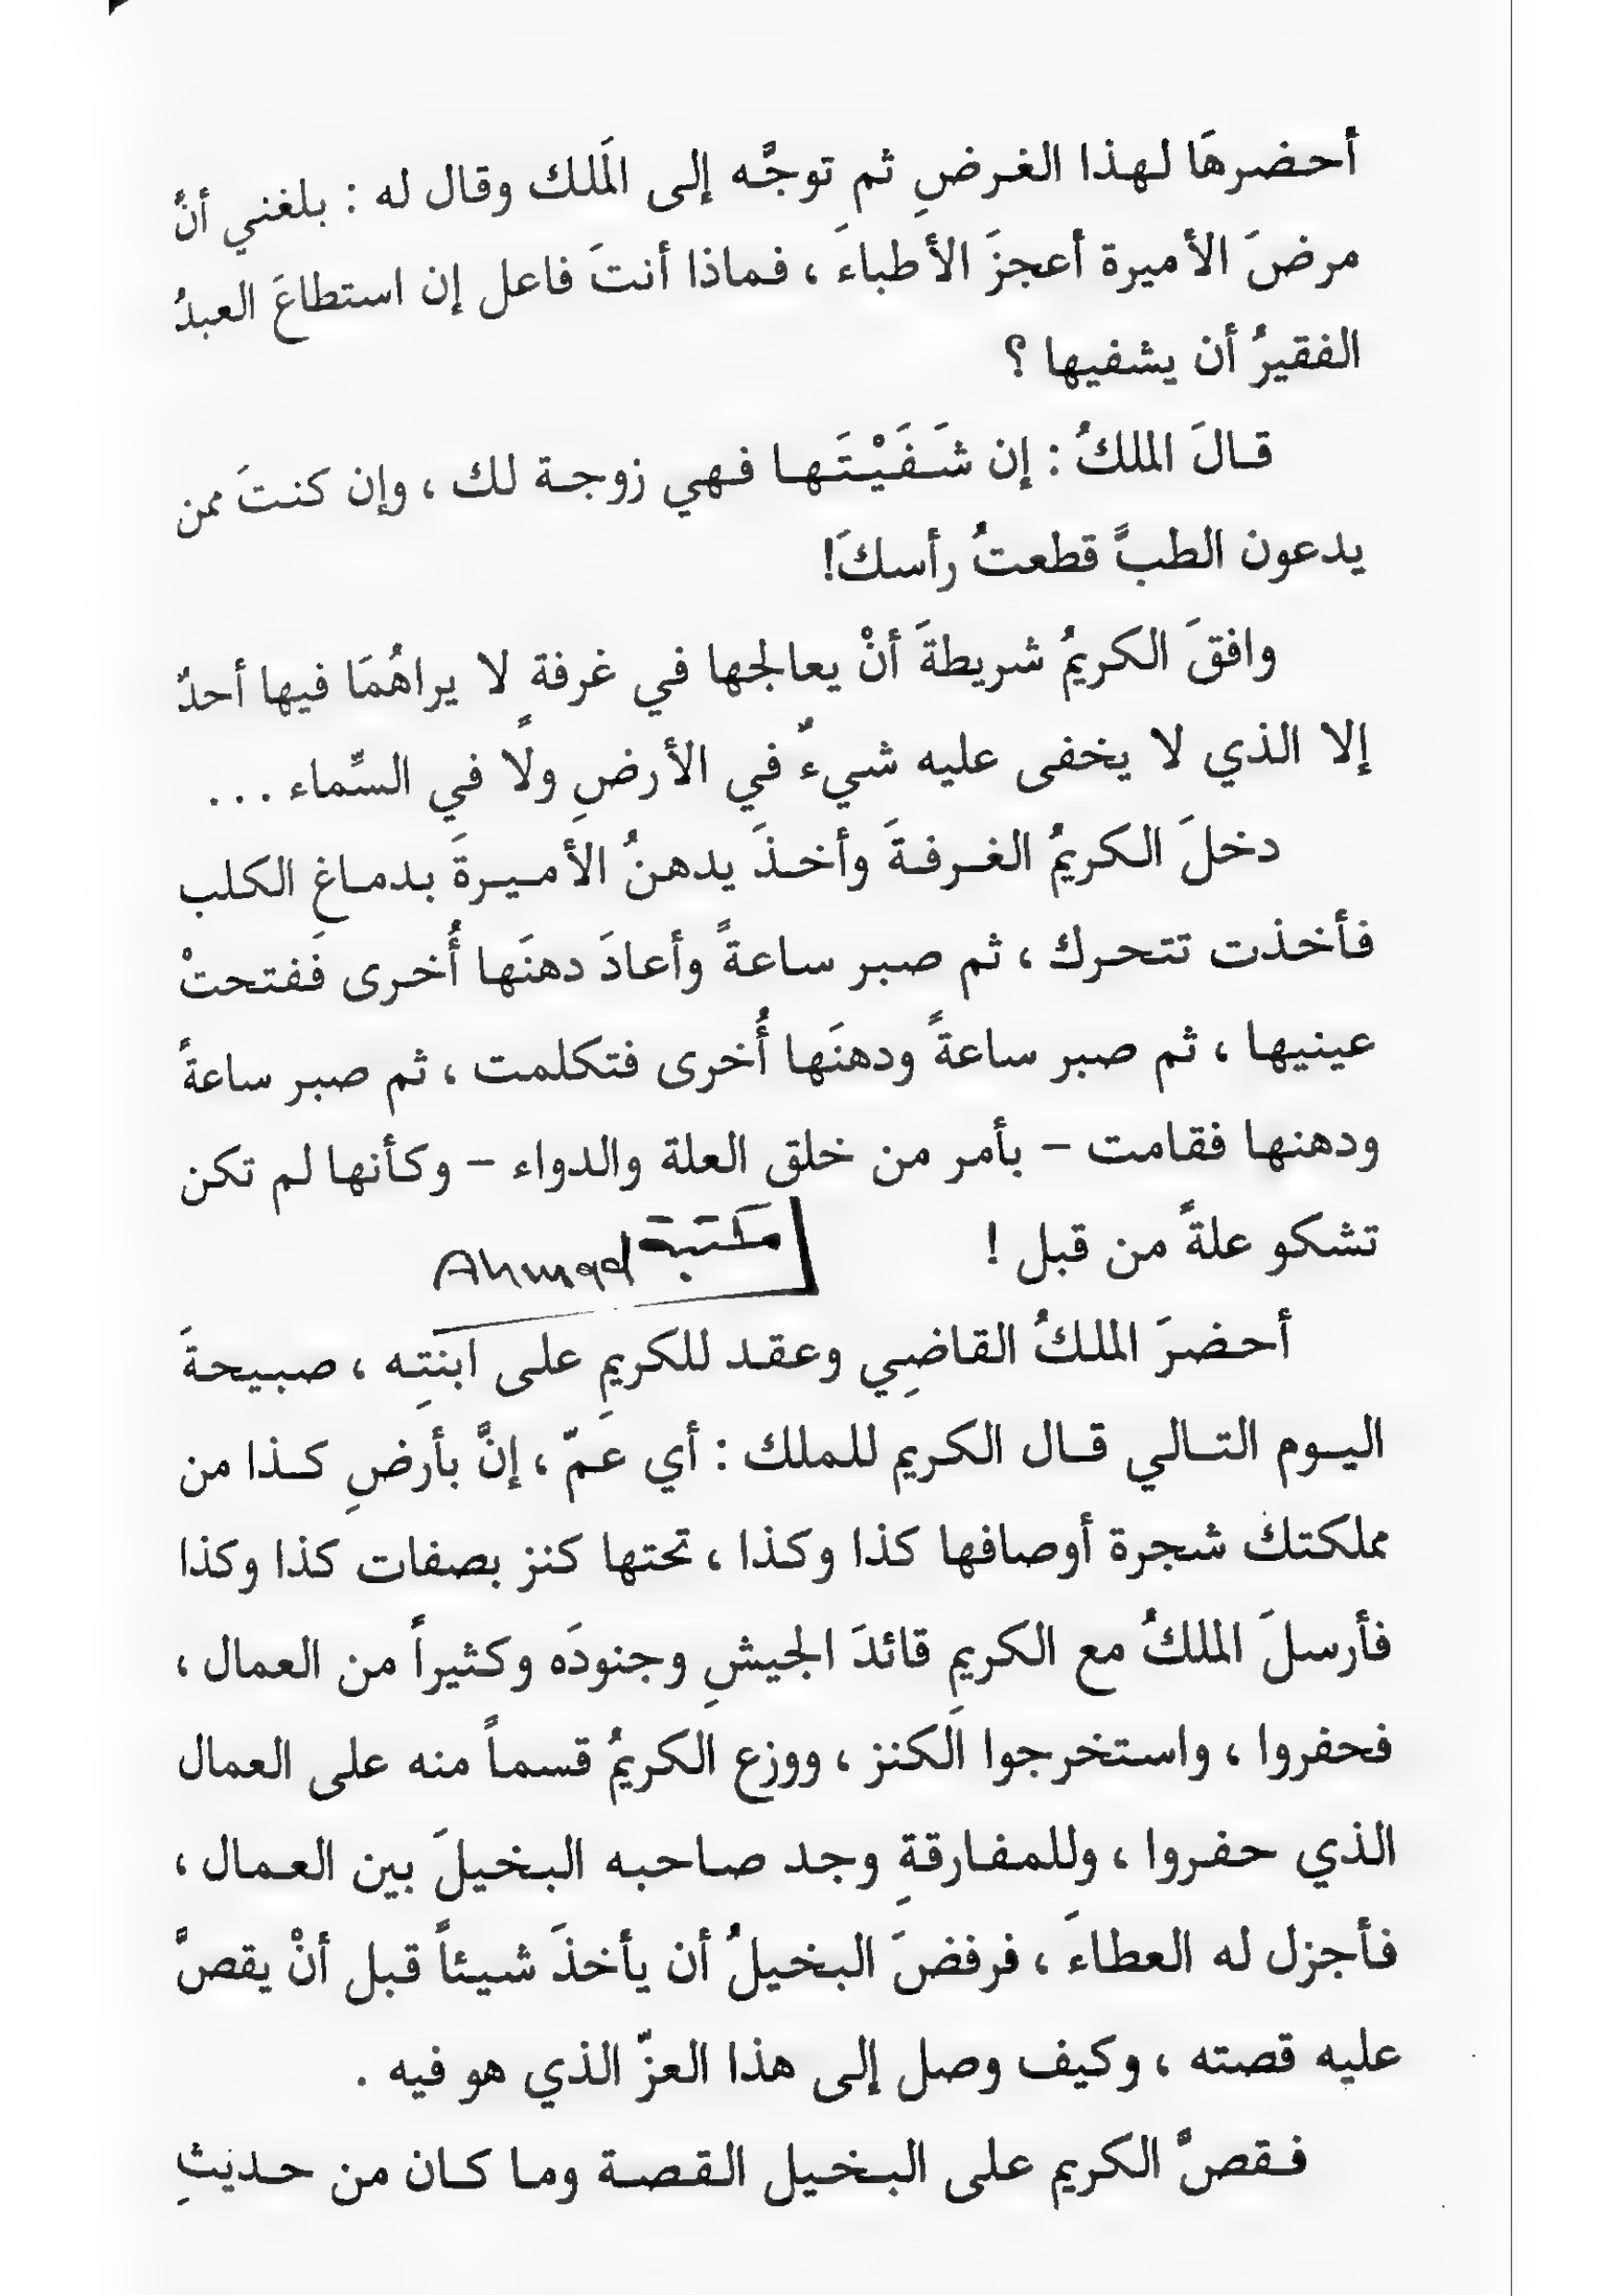 أحضرهَا لهذا الغرضِ ثم توجَّه إلى المَلك وقال له : بلغني أنَّ
مرضَ الأميرة أعجزَ الأطباءَ ، فماذا أنتَ فاعل إن استطاعَ العبدُ
الفقيرُ أن يشفيها ؟
قالَ الملكُ : إن شَفَيْتَها فهي زوجة لك ، وإن كنتَ ممن
يدعون الطبَّ قطعتُ رأسكَ!
وافقَ الكريمُ شريطةَ أنْ يعالجها في غرفةٍ لا يراهُمَا فيها أحدٌ
إلا الذي لا يخفى عليه شيءٌ في الأرضِ ولا في السَّماء ...
دخلَ الكريمُ الغرفةَ وأخذَ يدهنُ الأميرةَ بدماغِ الكلب
فأخذت تتحرك ، ثم صبر ساعةً وأعادَ دهنَها أُخرى فَفتحتْ
عينيها ، ثم صبر ساعةً ودهنَها أُخرى فتكلمت ، ثم صبر ساعةً
ودهنها فقامت – بأمر من خلق العلة والدواء – وكأنها لم تكن
تشكو علةً من قبل !
مكتبة Ahmad
أحضرَ الملكُ القاضِي وعقد للكريمِ على ابنتِه ، صبيحةَ
اليوم التالي قال الكريم للملك : أي عمّ ، إنَّ بأرضِ كذا من
مملكتك شجرة أوصافها كذا وكذا ، تحتها كنز بصفات كذا وكذا
فأرسلَ الملكُ مع الكريمِ قائدَ الجيشِ وجنودَه وكثيراً من العمال ،
فحفروا ، واستخرجوا الكنز ، ووزع الكريمُ قسماً منه على العمال
الذي حفروا ، وللمفارقةِ وجد صاحبه البخيلَ بين العمال ،
فأجزل له العطاءَ ، فرفضَ البخيلُ أن يأخذَ شيئاً قبل أنْ يقصَّ
عليه قصته ، وكيف وصل إلى هذا العزّ الذي هو فيه .
فقصَّ الكريم على البخيل القصة وما كان من حديثِ